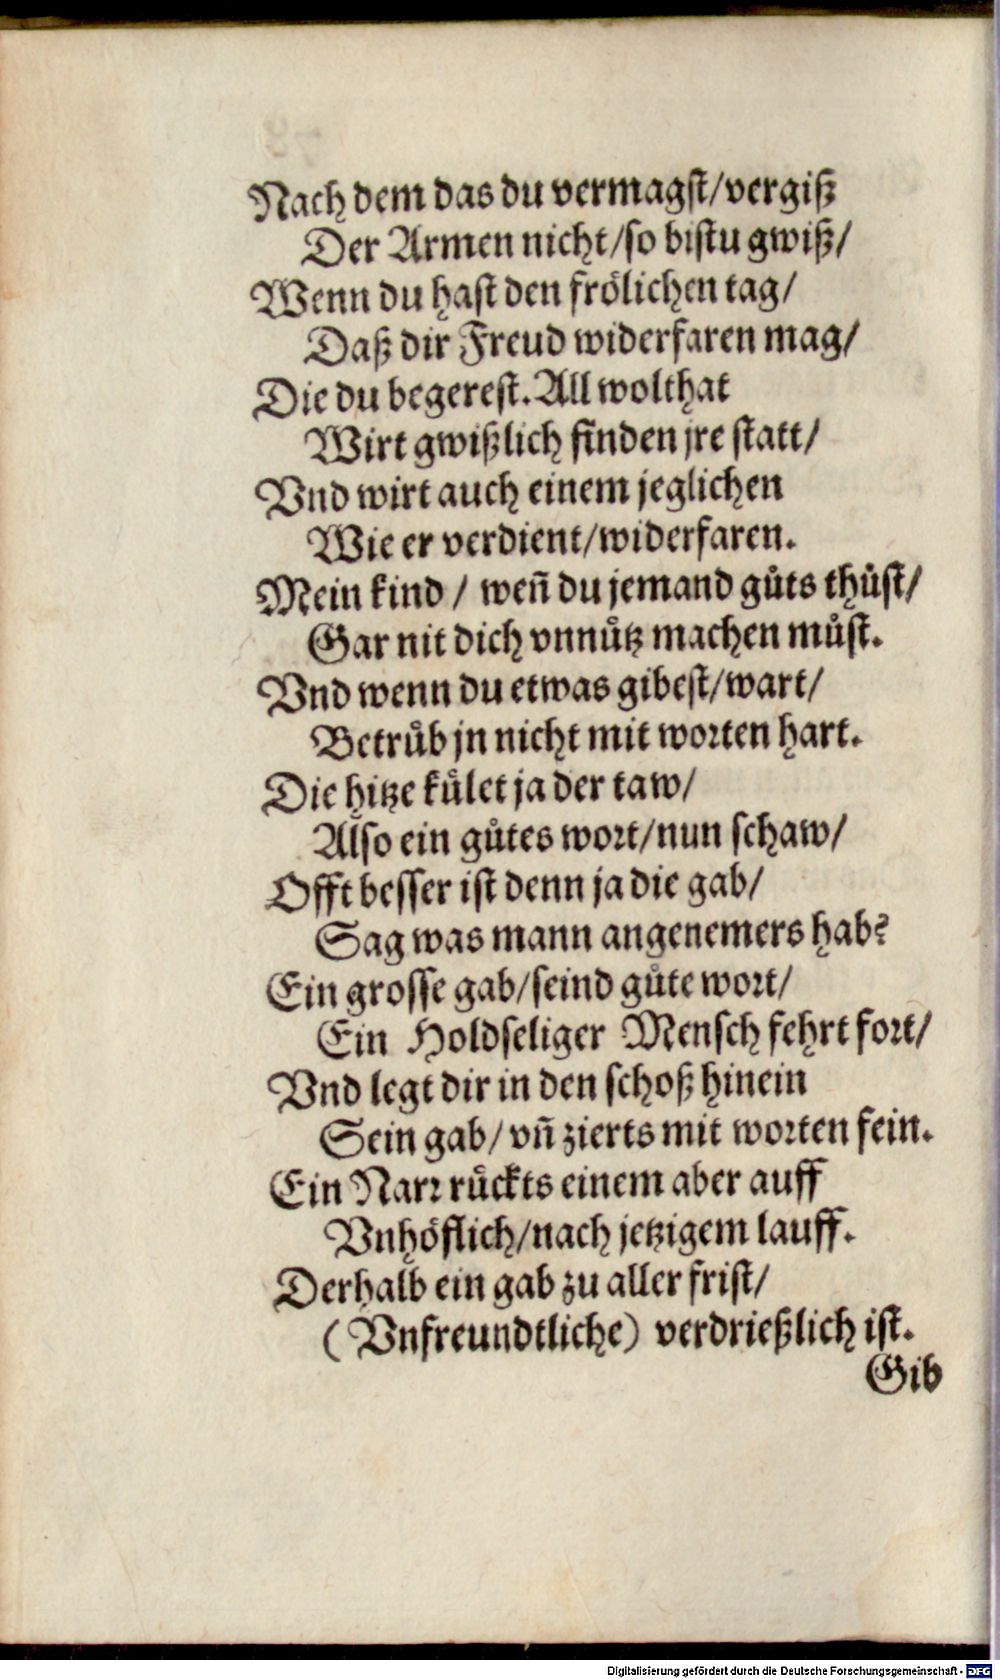 Nach dem das du vermagst/vergiß
Der Armen nicht/so bistu gwiß/
Wenn du hast den frölichen tag/
Daß dir Freud widerfaren mag/
Die du begerest. All wolthat
Wirt gwißlich finden jre statt/
Vnd wirt auch einem jeglichen
Wie er verdient/widerfaren.
Mein kind / weñ du jemand gůts thůst/
Gar nit dich vnnůtz machen můst.
Vnd wenn du etwas gibest/wart/
Betrůb jn nicht mit worten hart.
Die hitze kůlet ja der taw/
Also ein gůtes wort/nun schaw/
Offt besser ist denn ja die gab/
Sag was mann angenemers hab?
Ein grosse gab/seind gůte wort/
Ein Holdseliger Mensch fehrt fort/
Vnd legt dir in den schoß hinein
Sein gab/ vñ zierts mit worten fein.
Ein Narr růckts einem aber auff
Vnhöflich/nach jetzigem lauff.
Derhalb ein gab zu aller frist/
(Vnfreundtliche) verdrießlich ist.
Gib
Digitalisierung gefördert durch die Deutsche Forschungsgemeinschaft - DFG